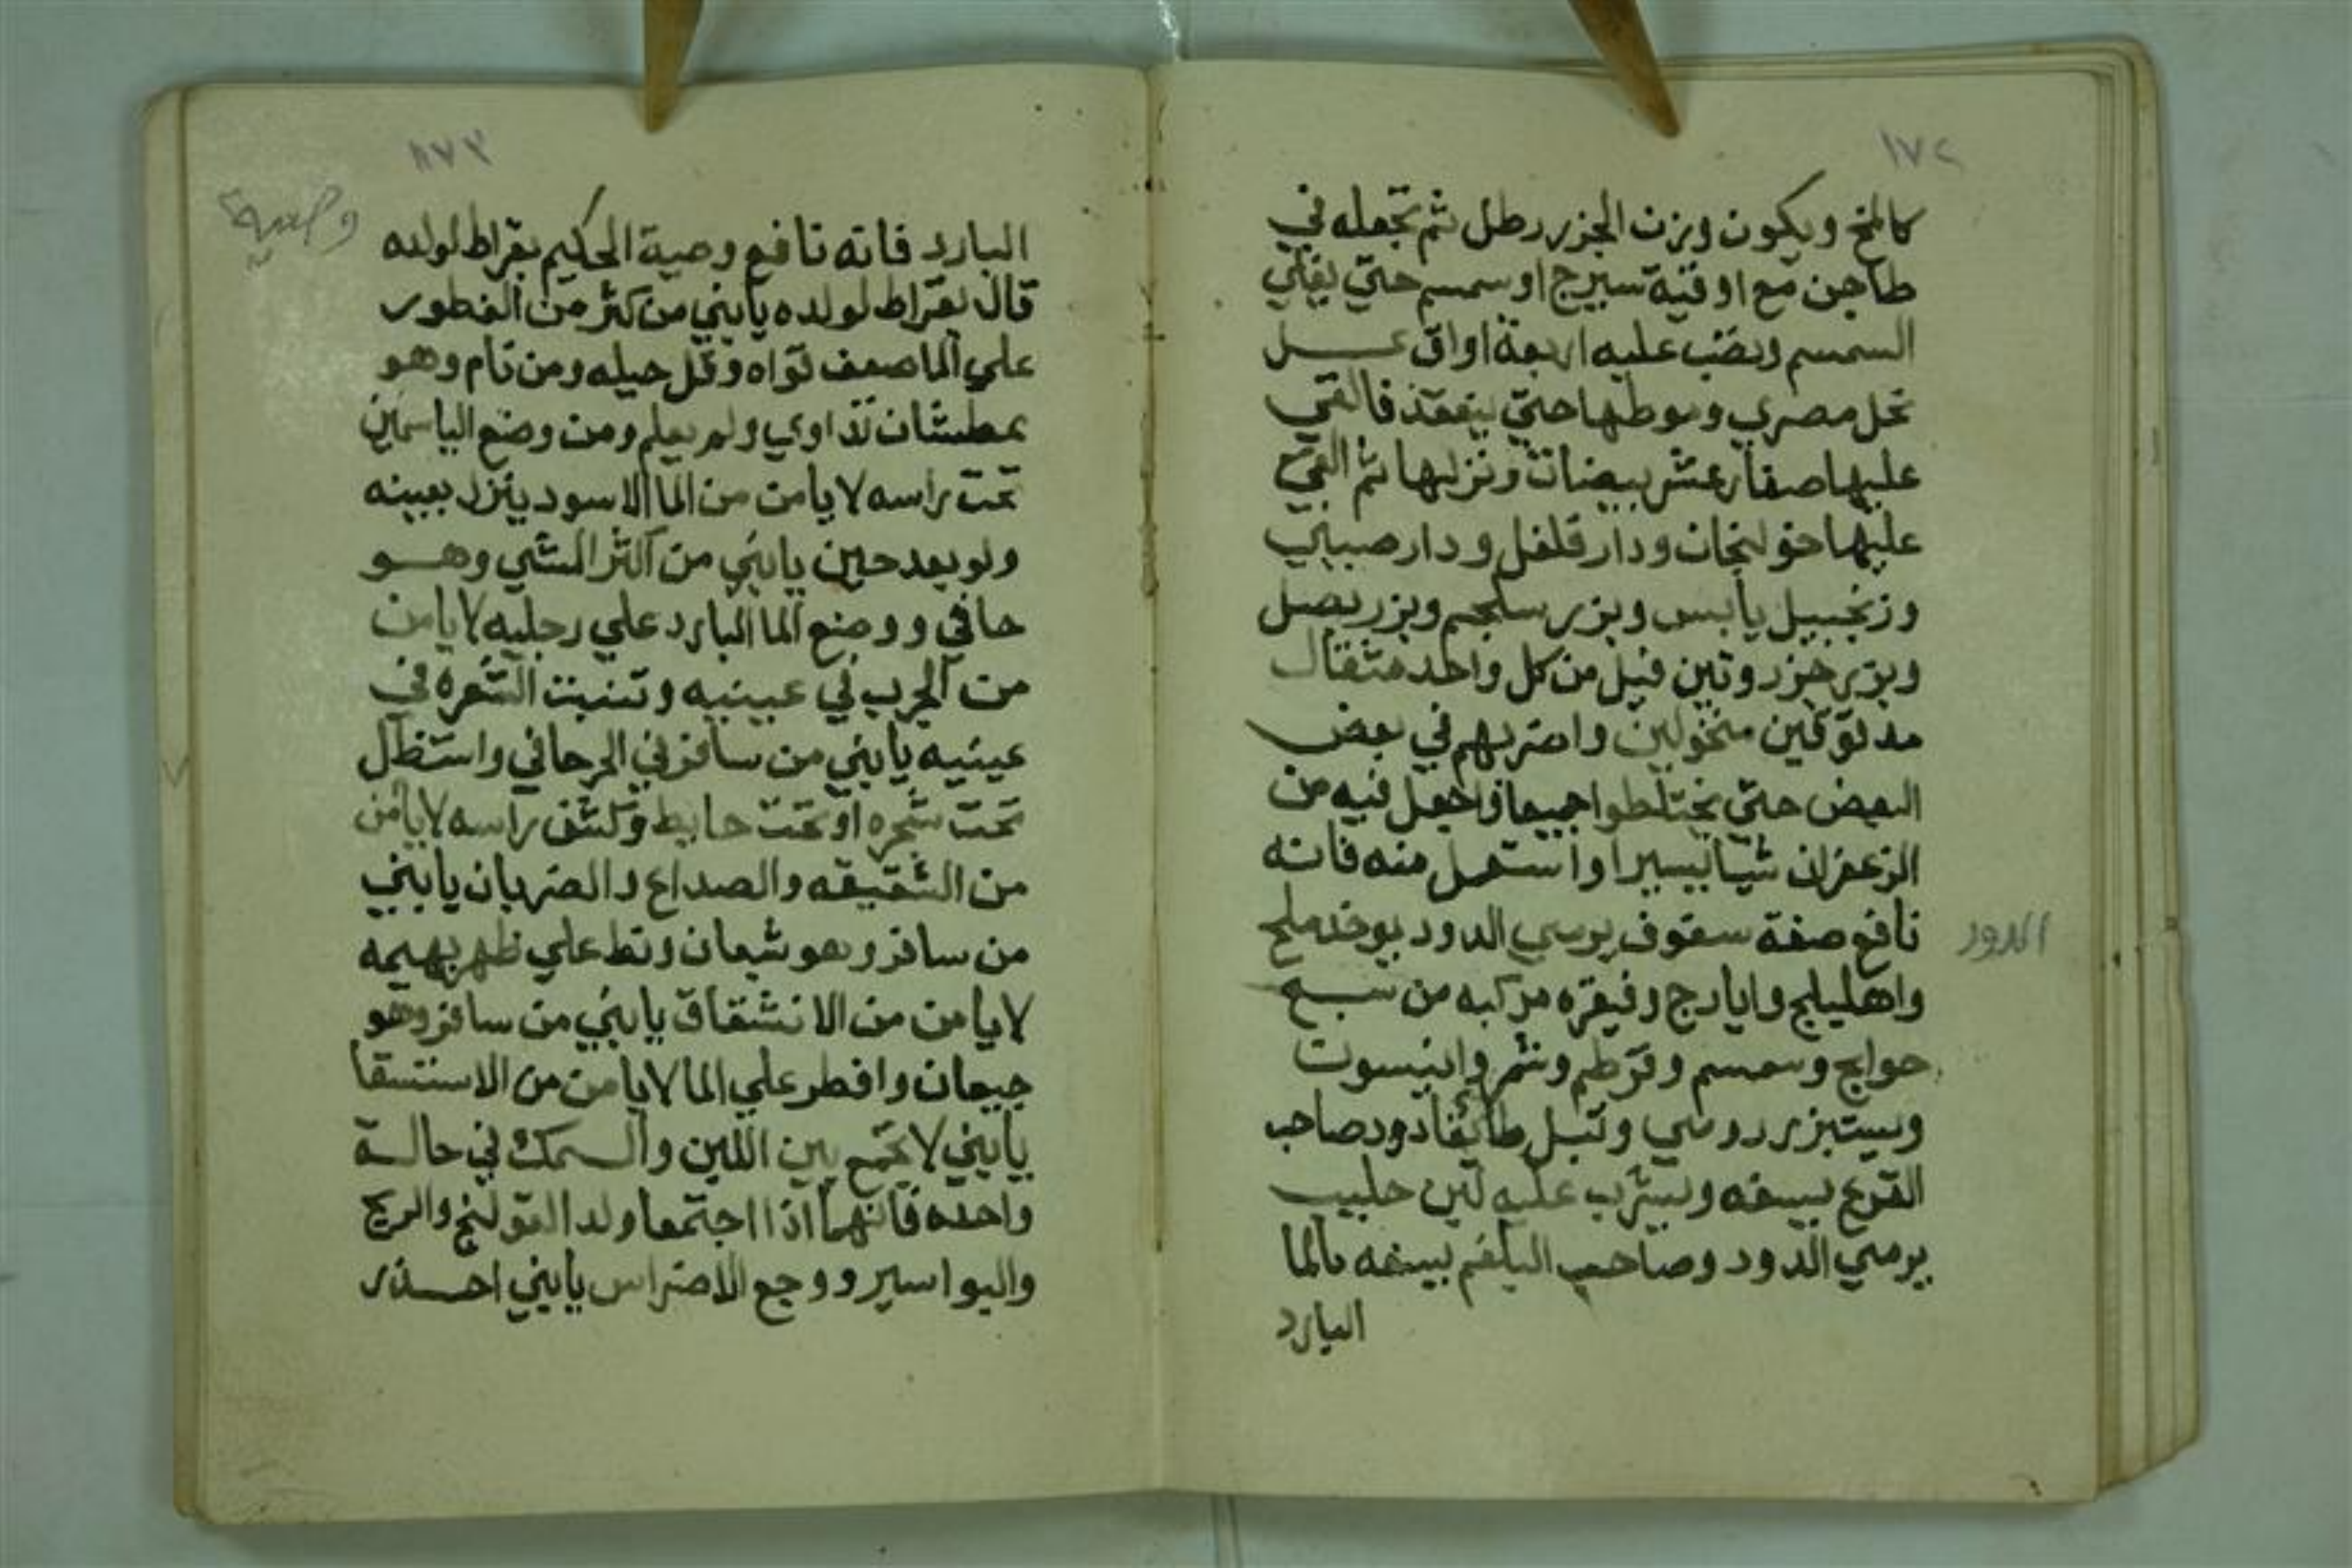 ١٧٢
كالمخ ويكون وزن الجزر رطل ثم تجعله في
طاجن مع اوقية سيرج او سمسم حتي يغلي
السمسم وبصب عليه اربعة اواق عسل
نحل مصري وسوطها حتي ينعقد فالقي
عليها صفار عشر بيضات ونزلها ثم القي
عليها خولنجان ودار فلفل ودار صيني
وزنجبيل يابس وبزر سلجم وبزر بصل
وبزر جزر وتين فيل من كل واحد مثقال
مدقوقين منخولين واضربهم في بعض
البعض حتي يختلطوا جميعا واجعل فيه من
الزعفران شيا يسيرا واستعمل منه فانه
نافع صفة سفوف يرمي الدود يوخذ ملح
الدود
واهليلج وايارج وفيقره مركبه من سبع
حوايج وسمسم وقرطم وشمر وانيسون
وسيتبزر رومي وتبل طايفا دود صاحب
القرع يسفه ويشرب عليه لبن حليب
يرمي الدود وصاحب البلغم يسفه بالما
البارد
١٧٣
وصية
البارد فانه نافع وصية الحكيم بقراط لولده
قال بقراط لولده يا بني من كثر من الفطور
علي الما ضعف قواه وقل حيله ومن نام وهو
عطشان تداوي ولم يعلم ومن وضع الياسمين
تحت راسه لا يامن من الما الاسود ينزل بعينه
ولو بعد حين يا بني من اكثر المشي وهو
حافي ووضع الما البارد علي رجليه لا يامن
من الجرب في عينيه وتنبت الشعره في
عينيه يا بني من سافر في الحر حافي واستظل
تحت شجره او تحت حايط وكشف راسه لا يامن
من الشقيقه والصداع والضربان يا بني
من سافر وهو شبعان ونط علي ظهر بهيمه
لا يامن من الانشقاق يا بني من سافر وهو
جيعان وافطر علي الما لا يامن من الاستسقا
يا بني لا تجمع بين اللبن والسمك في حالة
واحده فانهما اذا اجتمعا ولدا القولنج والريح
والبواسير ووجع الاضراس يا بني احذر